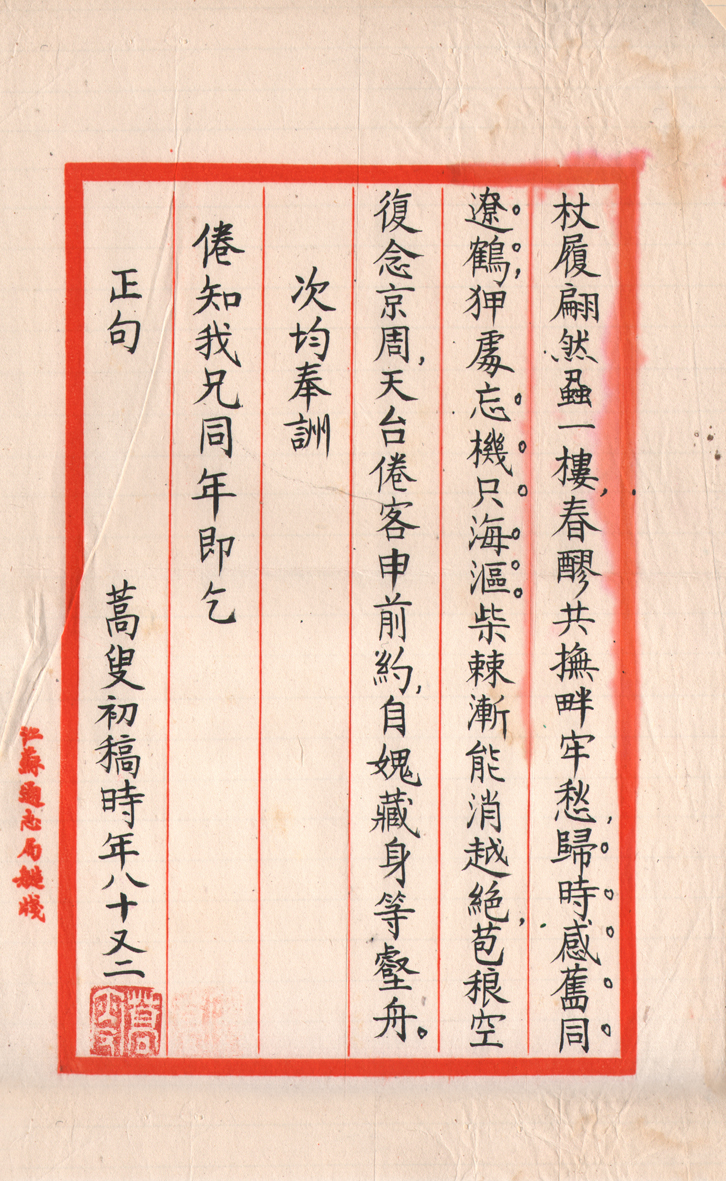 杖履翩然蝨一樓，春醪共撫畔牢愁，歸時感舊同
遼鶴，狎處忘機只海漚柴棘漸能消越絕，苞稂空
復念京周，天台倦客申前約，自媿藏身等壑舟。
次均奉詶
倦知我兄同年即乞
正句
蒿叟初稿時年八十又二
江蘇通志局牋